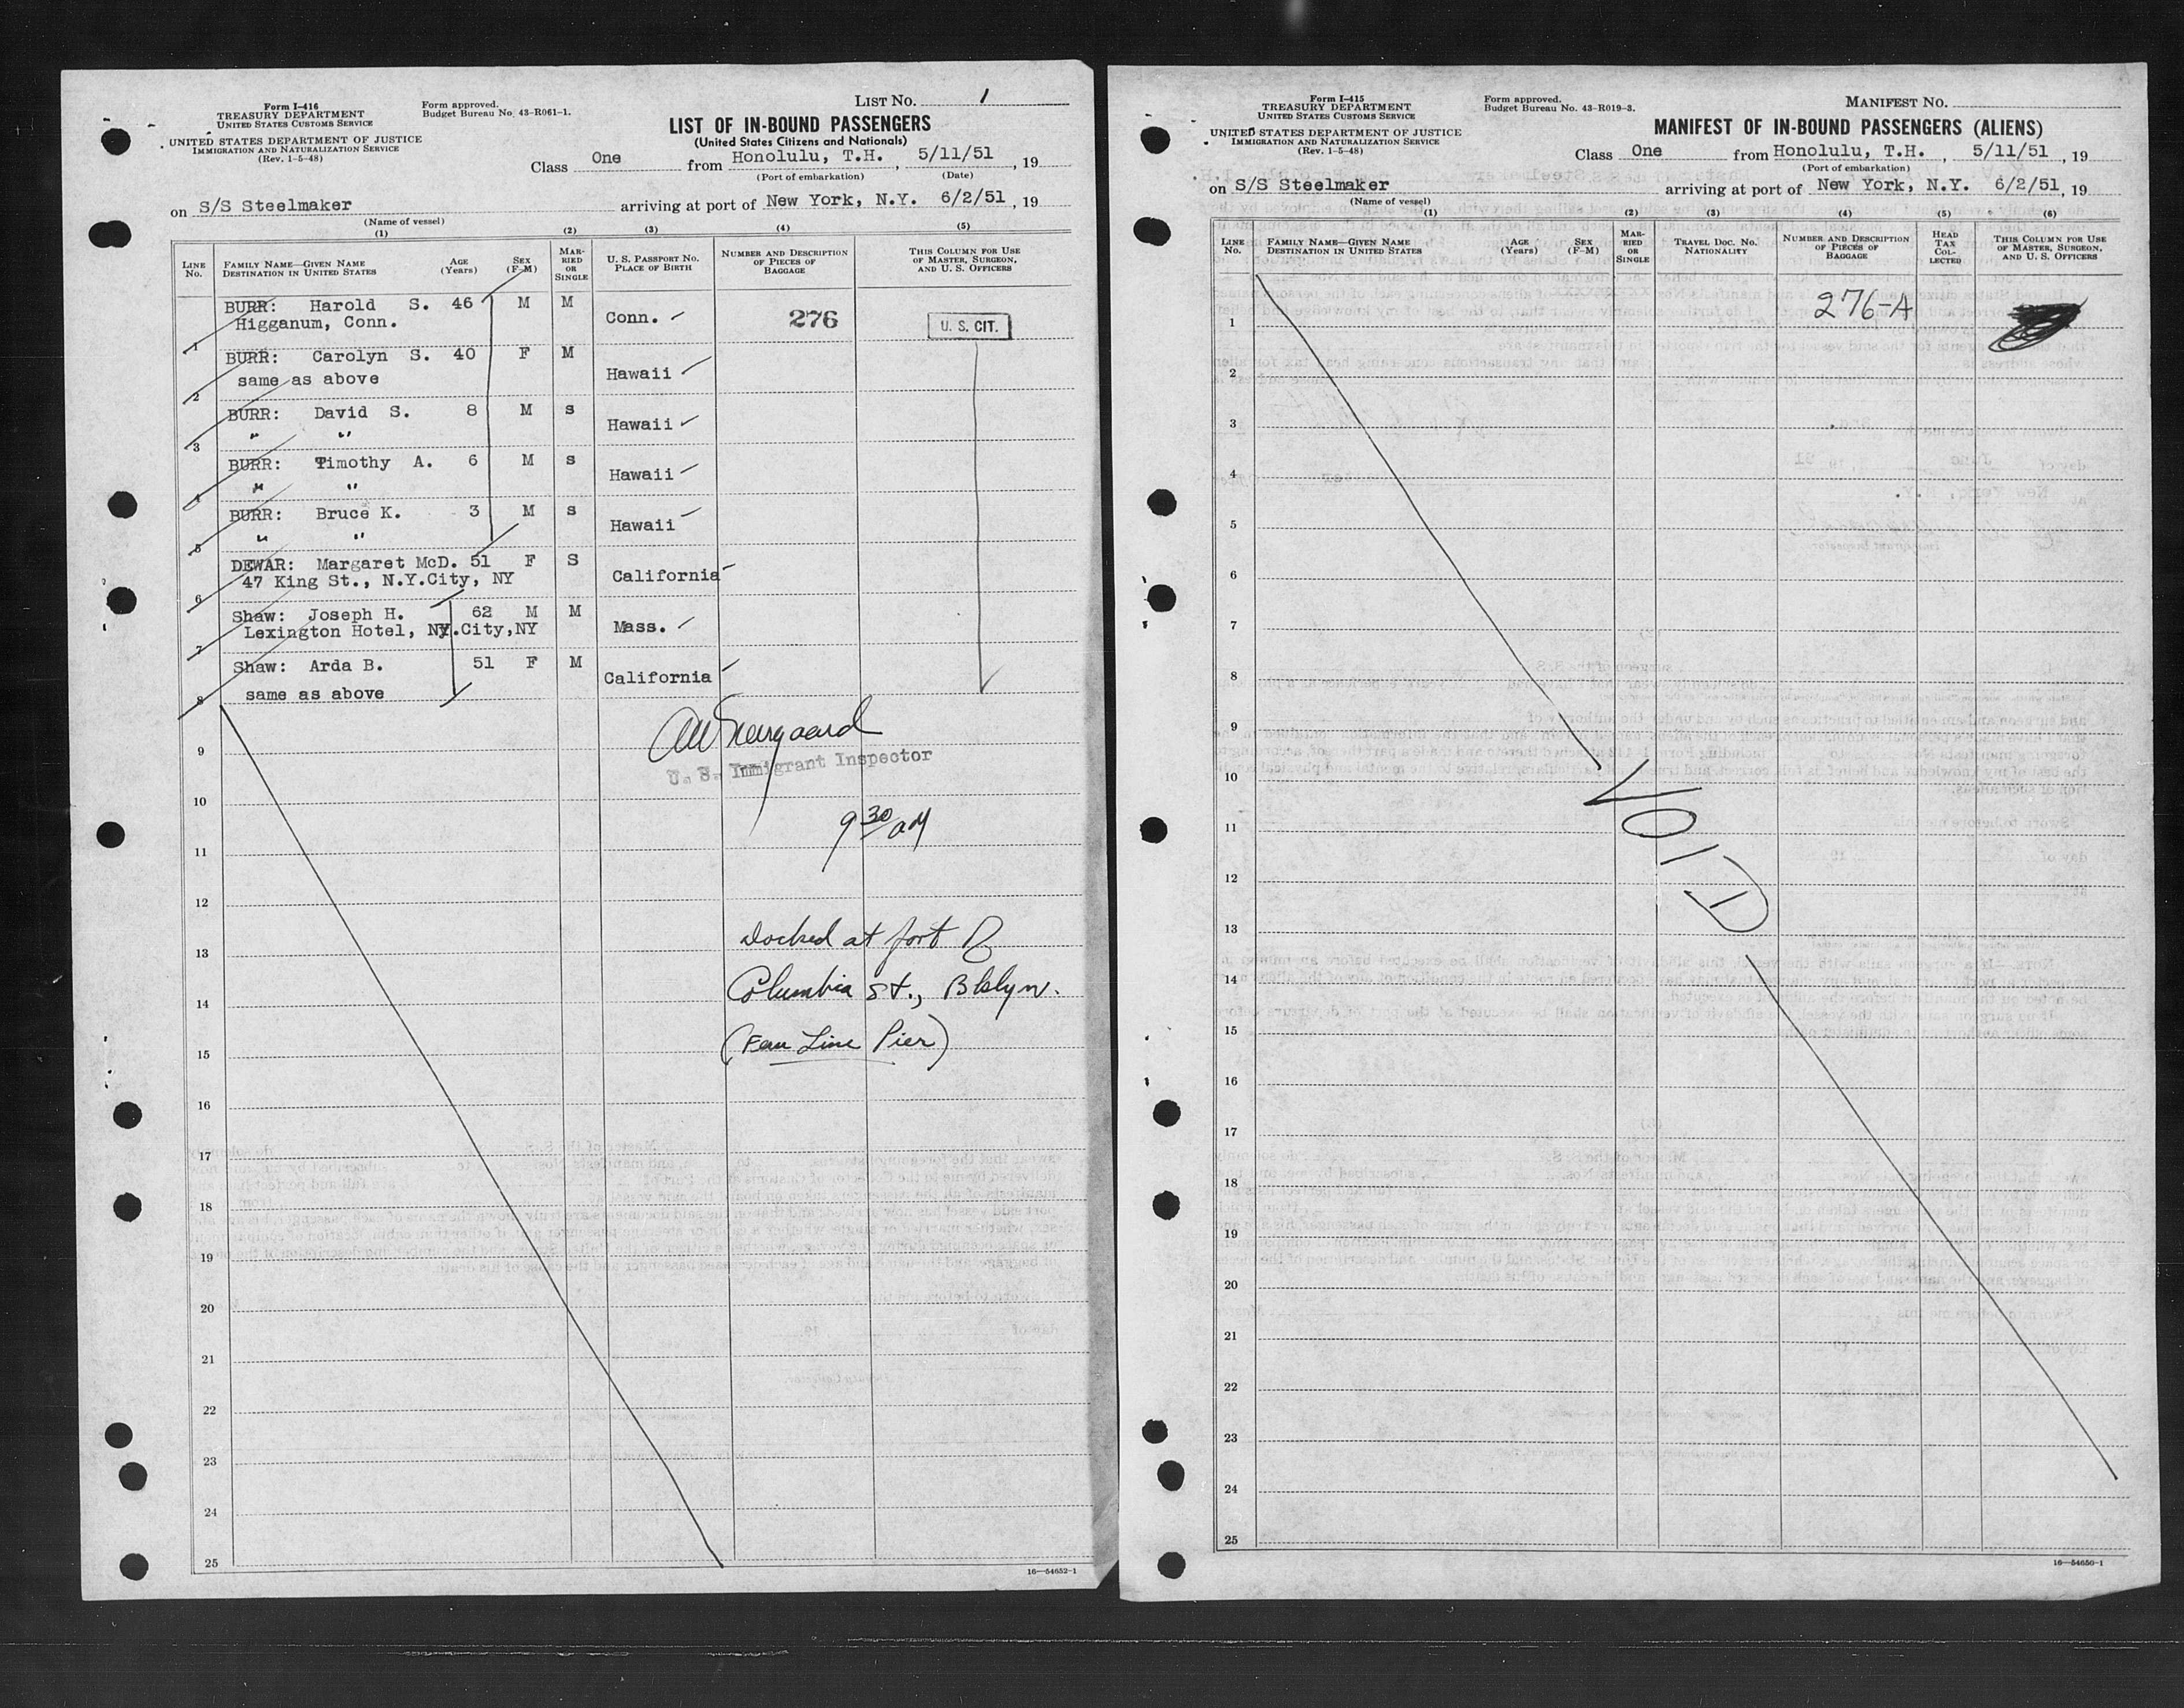 Form I-416
TREASURY DEPARTMENT
UNITED STATES CUSTOMS SERVICE
UNITED STATES DEPARTMENT OF JUSTICE
IMMIGRATION AND NATURALIZATION SERVICE
(Rev. 1-5-48)
Form approved.
Budget Bureau No. 43-R061-1.
LIST NO. 1
LIST OF IN-BOUND PASSENGERS
(United States Citizens and Nationals)
Class One from Honolulu, T.H. , 5/11/51 , 19
(Port of embarkation) (Date)
on S/S Steelmaker arriving at port of New York, N.Y. 6/2/51 , 19
(Name of vessel)
(1) (2) (3) (4) (5)
LINE No. FAMILY NAME—GIVEN NAME DESTINATION IN UNITED STATES AGE (Years) SEX (F-M) MARRIED OR SINGLE U. S. PASSPORT NO. PLACE OF BIRTH NUMBER AND DESCRIPTION OF PIECES OF BAGGAGE THIS COLUMN FOR USE OF MASTER, SURGEON, AND U. S. OFFICERS
BURR: Harold S. 46 M M
1 Higganum, Conn. Conn. 276 U. S. CIT.
BURR: Carolyn S. 40 F M
2 same as above Hawaii
BURR: David S. 8 M s
3 " " Hawaii
BURR: Timothy A. 6 M s
4 " " Hawaii
BURR: Bruce K. 3 M s
5 " " Hawaii
DEWAR: Margaret McD. 51 F S
6 47 King St., N.Y.City, NY California
Shaw: Joseph H. 62 M M
7 Lexington Hotel, NY.City,NY Mass.
Shaw: Arda B. 51 F M
8 same as above California
9
U. S. Immigrant Inspector
10
9 30 AM
11
12
13 Docked at foot of
14 Columbia St., Bklyn.
15 Line Pier)
16
17
18
19
20
21
22
23
24
25
16—54652-1
Form I-415
TREASURY DEPARTMENT
UNITED STATES CUSTOMS SERVICE
UNITED STATES DEPARTMENT OF JUSTICE
IMMIGRATION AND NATURALIZATION SERVICE
(Rev. 1-5-48)
Form approved.
Budget Bureau No. 43-R019-3.
MANIFEST NO.
MANIFEST OF IN-BOUND PASSENGERS (ALIENS)
Class One from Honolulu, T.H. , 5/11/51 , 19
(Port of embarkation)
on S/S Steelmaker arriving at port of New York, N.Y. 6/2/51 , 19
(Name of vessel)
(1) (2) (3) (4) (5) (6)
LINE No. FAMILY NAME—GIVEN NAME DESTINATION IN UNITED STATES AGE (Years) SEX (F-M) MARRIED OR SINGLE TRAVEL DOC. NO. NATIONALITY NUMBER AND DESCRIPTION OF PIECES OF BAGGAGE HEAD TAX COLLECTED THIS COLUMN FOR USE OF MASTER, SURGEON, AND U. S. OFFICERS
1 276-A
2
3
4
5
6
7
8
9
10
VOID
11
12
13
14
15
16
17
18
19
20
21
22
23
24
25
16—54650-1